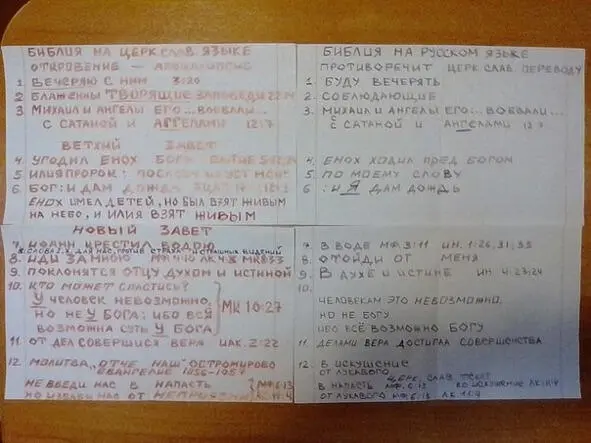 БИБЛИЯ НА ЦЕРК СЛАВ ЯЗЫКЕ
ОТКРОВЕНИЕ – АПОКАЛИПСИС
1 ВЕЧЕРЯЮ С НИМ 3:20
2 БЛАЖЕННЫ ТВОРЯЩИЕ ЗАПОВЕДИ 22:14
3 МИХАИЛ И АНГЕЛЫ ЕГО... ВОЕВАЛИ...
С САТАНОЙ И АГГЕЛАМИ 12:7
ВЕТХИЙ ЗАВЕТ
4. УГОДИЛ ЕНОХ БОГУ БЫТИЕ
5 ИЛИЯ ПРОРОК:
6 БОГ: И ДАМ ДОЖДЬ
ЕНОХ ИМЕЛ ДЕТЕЙ, НО БЫЛ ВЗЯТ ЖИВЫМ
НА НЕБО, И ИЛИЯ ВЗЯТ ЖИВЫМ
НОВЫЙ ЗАВЕТ
7. ИОАНН КРЕСТИЛ ВОДОЮ
8. ИДИ ЗА МНОЮ МФ 4:10 ЛК 4:8 МК 8:33
9. ПОКЛОНЯТСЯ ОТЦУ ДУХОМ И ИСТИНОЙ
10. КТО МОЖЕТ СПАСТИСЬ?
У ЧЕЛОВЕК НЕВОЗМОЖНО,
НО НЕ У БОГА: ИБО ВСЯ
ВОЗМОЖНА СУТЬ У БОГА
МК 10:27
11 ОТ ДЕЛ СОВЕРШИСЯ ВЕРА ИАК. 2:22
12 МОЛИТВА „ОТЧЕ НАШ" ОСТРОМИРОВО
ЕВАНГЕЛИЕ 1056-1057
НЕ ВВЕДИ НАС В НАПАСТЬ
НО ИЗБАВИ НАС ОТ НЕПРИЯЗНИ
МФ 6:13
ЛК 11:4
БИБЛИЯ НА РУССКОМ ЯЗЫКЕ
ПРОТИВОРЕЧИТ ЦЕРК СЛАВ ПЕРЕВОДУ
1. БУДУ ВЕЧЕРЯТЬ
2. СОБЛЮДАЮЩИЕ
3. МИХАИЛ И АНГЕЛЫ ЕГО... ВОЕВАЛИ...
С САТАНОЙ И АНГЕЛАМИ 12:7
4. ЕНОХ ХОДИЛ ПРЕД БОГОМ
5. ПО МОЕМУ СЛОВУ
6 : И Я ДАМ ДОЖДЬ
7. В ВОДЕ МФ 3:11 ИН. 1:26,31,33
8. ОТОЙДИ ОТ МЕНЯ
9. В ДУХЕ И ИСТИНЕ ИН 4:23,24
10.
ЧЕЛОВЕКАМ ЭТО НЕВОЗМОЖНО,
НО НЕ БОГУ
ИБО ВСЁ ВОЗМОЖНО БОГУ
11. ДЕЛАМИ ВЕРА ДОСТИГЛА СОВЕРШЕНСТВА
12. В ИСКУШЕНИЕ
ОТ ЛУКАВОГО
ЦЕРК. СЛАВ ТЕКСТ
В НАПАСТЬ МФ. 6:13 ВО ИСКУШЕНИЕ ЛК 11:4
ОТ ЛУКАВОГО МФ. 6:13 ЛК 11:4